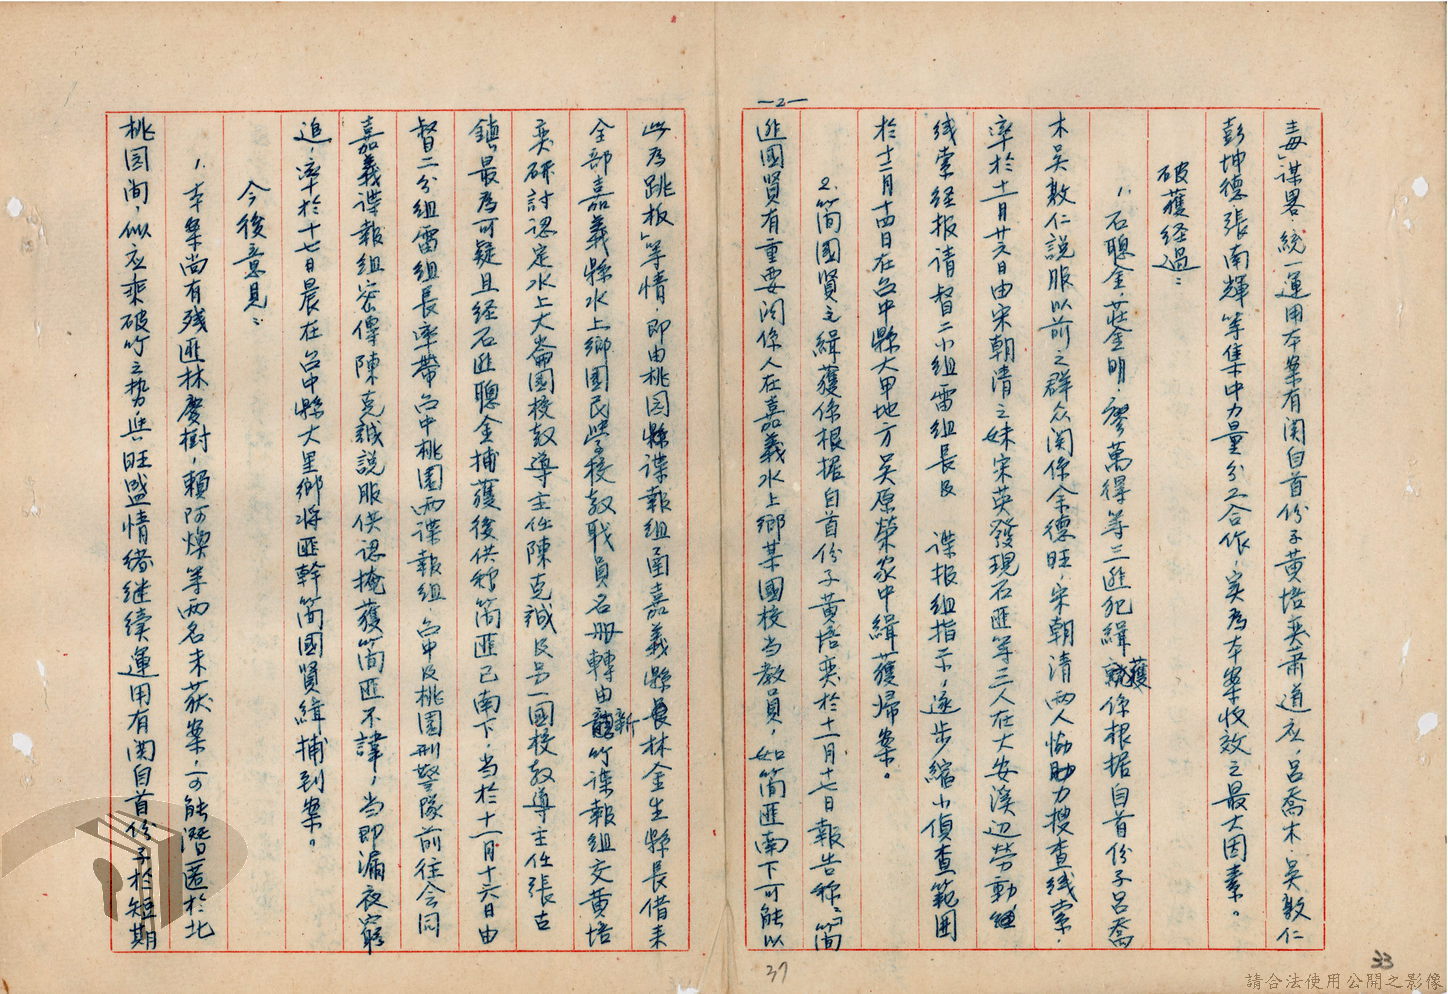 —2—
毒」謀畧，統一運用本案有関自首份子黃培奕蕭道应，呂喬木，吳敦仁
彭坤德張南輝等集中力量分工合作，实為本案收效之最大因素。
破獲経過：
1. 石聰金，莊金明，廖萬得等三匪犯緝獲係根据自首份子呂喬
木吳敦仁説服以前之群众関係余德旺，宋朝清两人協助力搜查线索，
率於十一月廿六日由宋朝清之妹宋英發現石匪等三人在大安溪辺勞動經
线索経报请督二小組雷組長及　諜报組指示，逐步縮小偵查範囲
於十二月十四日在台中縣大甲地方吴原榮家中緝獲歸案。
2. 简國賢之緝獲係根据自首份子黃培奕於十一月十七日報告称：「简
匪國賢有重要関係人在嘉義水上鄉某國校当教員，如简匪南下可能以
此為跳板」等情，即由桃园縣諜報組函嘉義縣長林金生縣長借来
全部嘉義縣水上鄉國民學校教職員名册轉由新竹諜報組交黃培
奕研討認定水上大崙國校教導主任陳克誠及另一國校教導主任張古
鎮，最為可疑且经石匪聰金捕獲後供称简匪已南下，当於十二月十六日由
督二分組雷組長率帶台中桃園两諜報組，台中及桃園刑警隊前往会同
嘉義諜報組密傳陳克誠説服供認掩護简匪不諱，当即漏夜窮
追，率於十七日晨在台中縣大里鄉将匪幹简國賢緝捕到案。
今後意見：
1. 本案尚有残匪林慶樹，賴阿煥等两名未获案，可能潛匿於北
桃园间，似应乘破竹之势與旺盛情緒继续運用有関自首份子於短期
37
33
請合法使用公開之影像